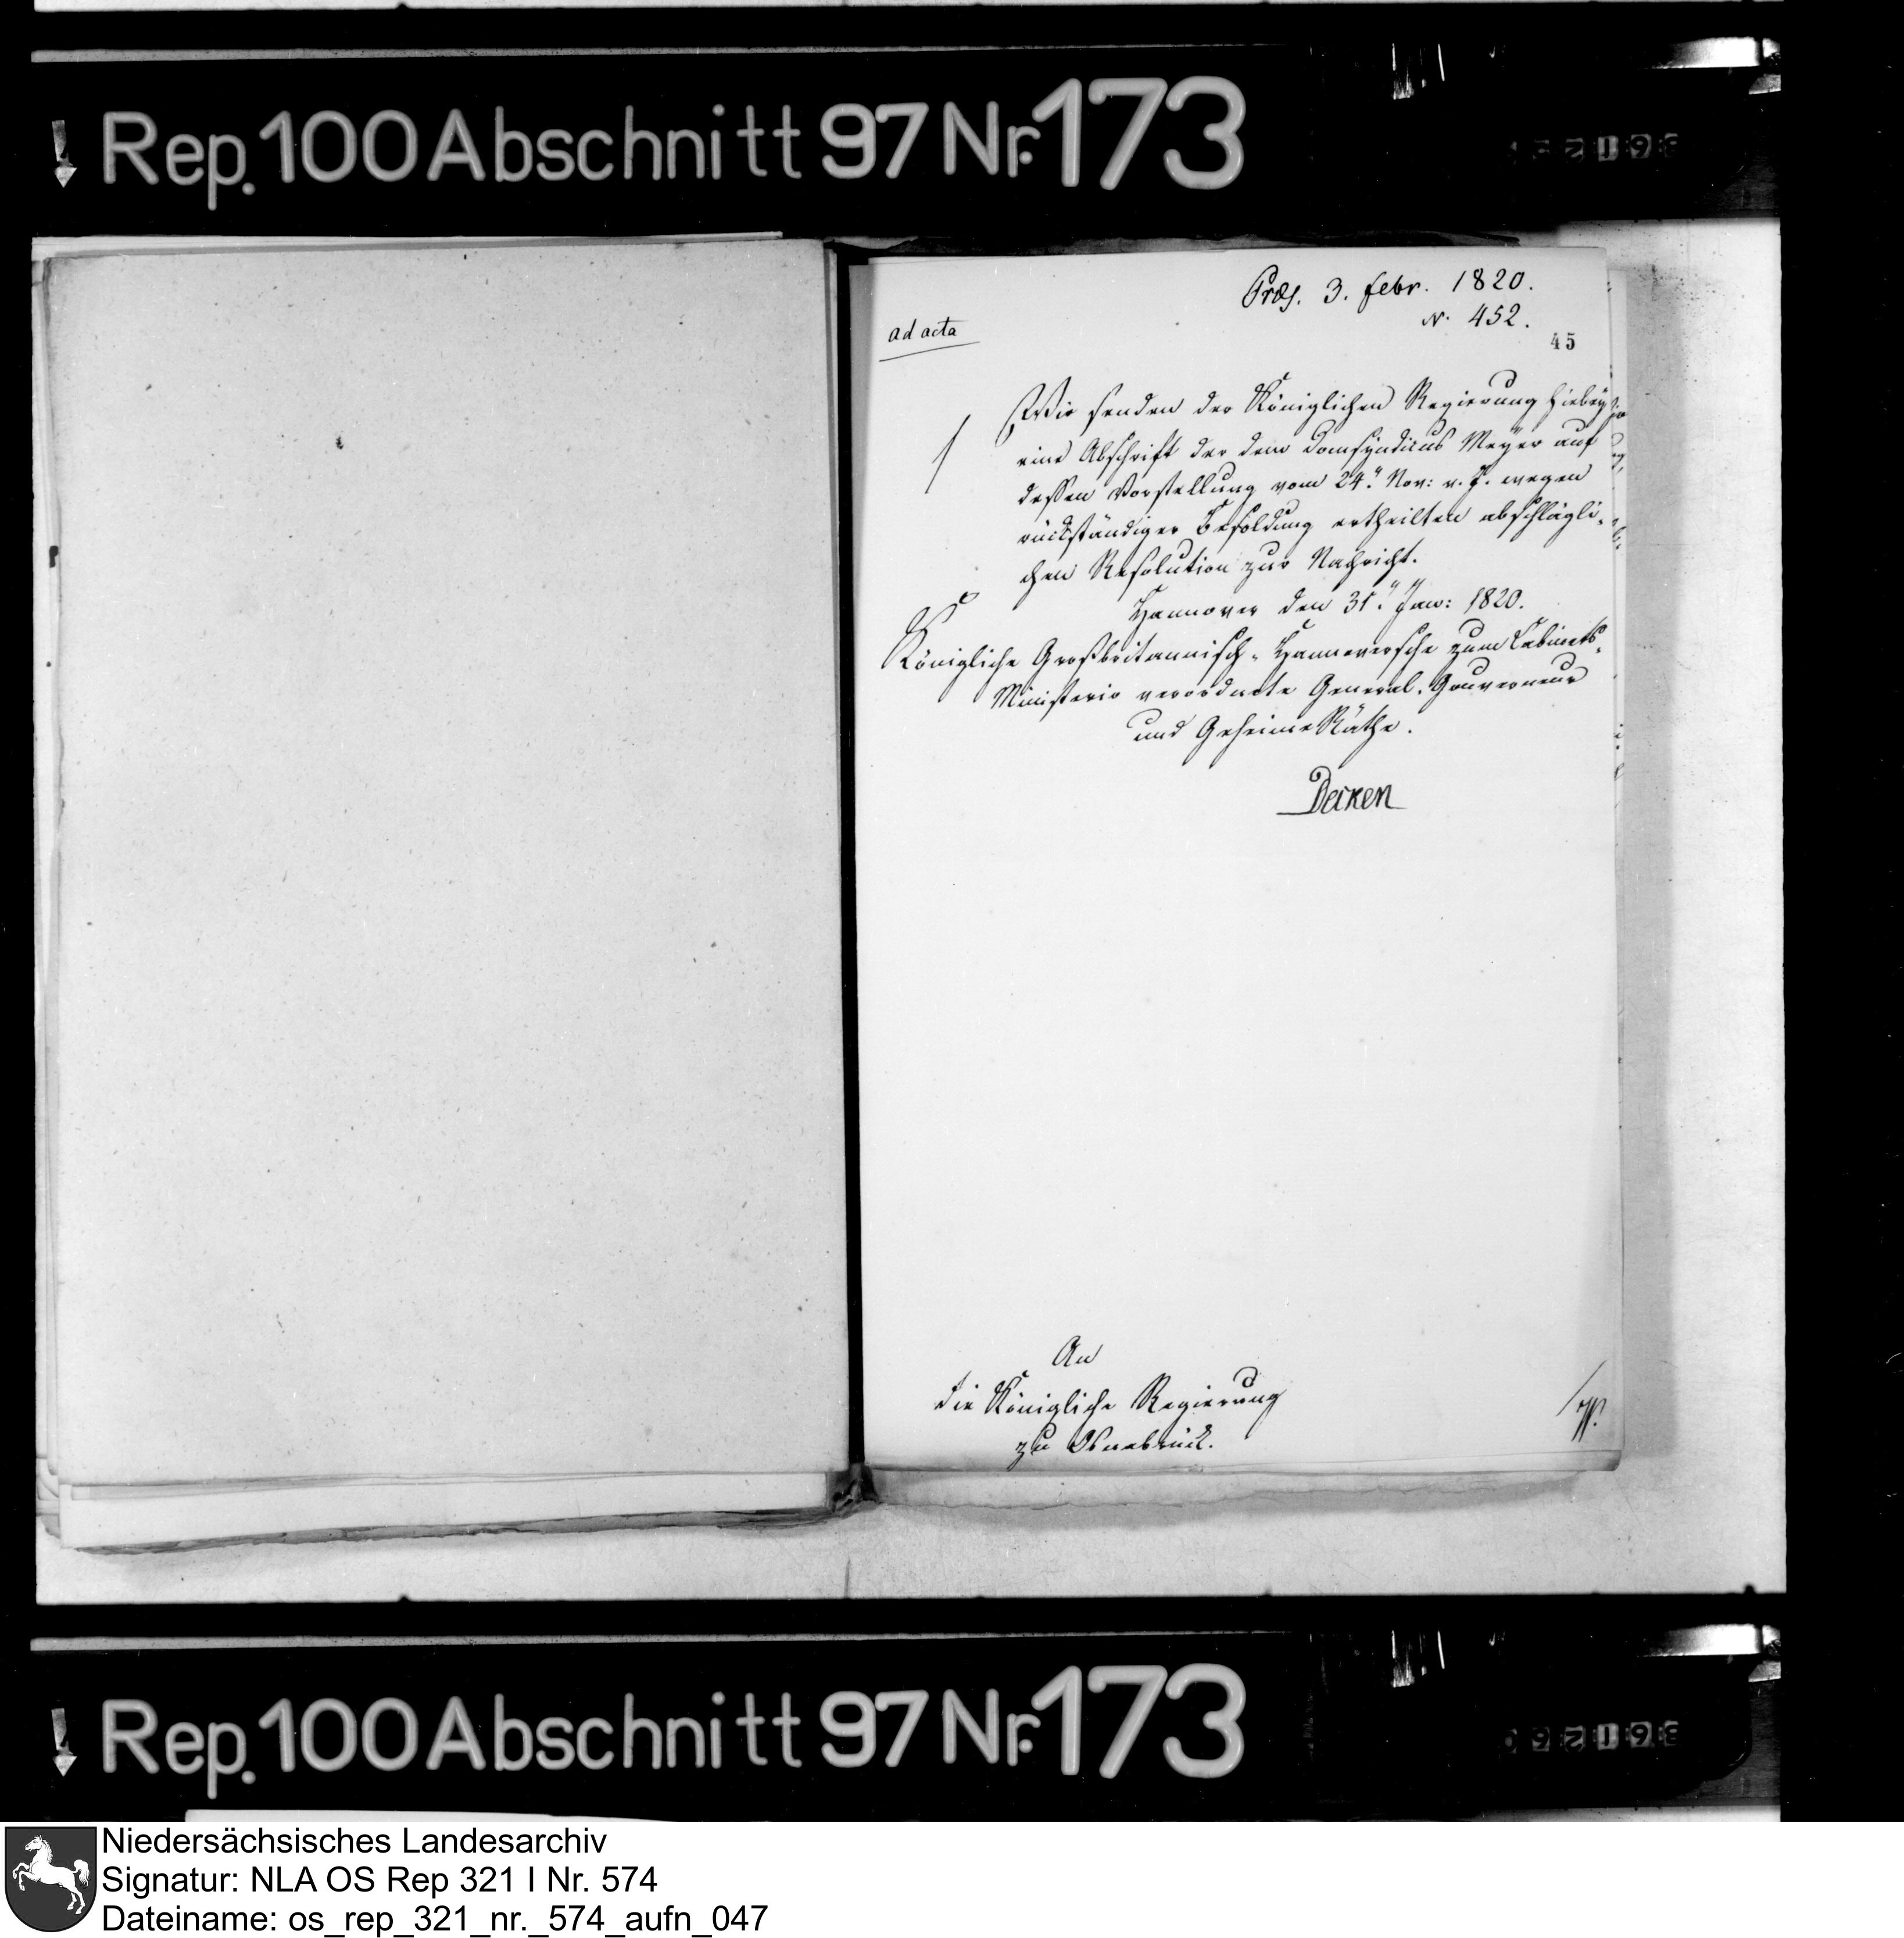 Rep. 100 Abschnitt 97 Nr. 173
Præs. 3. febr. 1820.
N. 452.
ad acta
45
Wir senden der Königlichen Regierung hiebey
eine Abschrift der dem Domsyndicus Meyer auf
dessen Vorstellung vom 24. Nov: v. J. wegen
rückständiger Besoldung ertheilten abschlägli-
chen Resolution zur Nachricht.
Hannover den 31. Jan: 1820.
Königliche Großbritannisch-Hannoversche zum Cabinets-
Ministerio verordnete General-Gouverneur
und Geheime Räthe.
Decken
An
die Königliche Regierung
zu Osnabrück.
Rep. 100 Abschnitt 97 Nr. 173
Niedersächsisches Landesarchiv
Signatur: NLA OS Rep 321 I Nr. 574
Dateiname: os_rep_321_nr._574_aufn_047